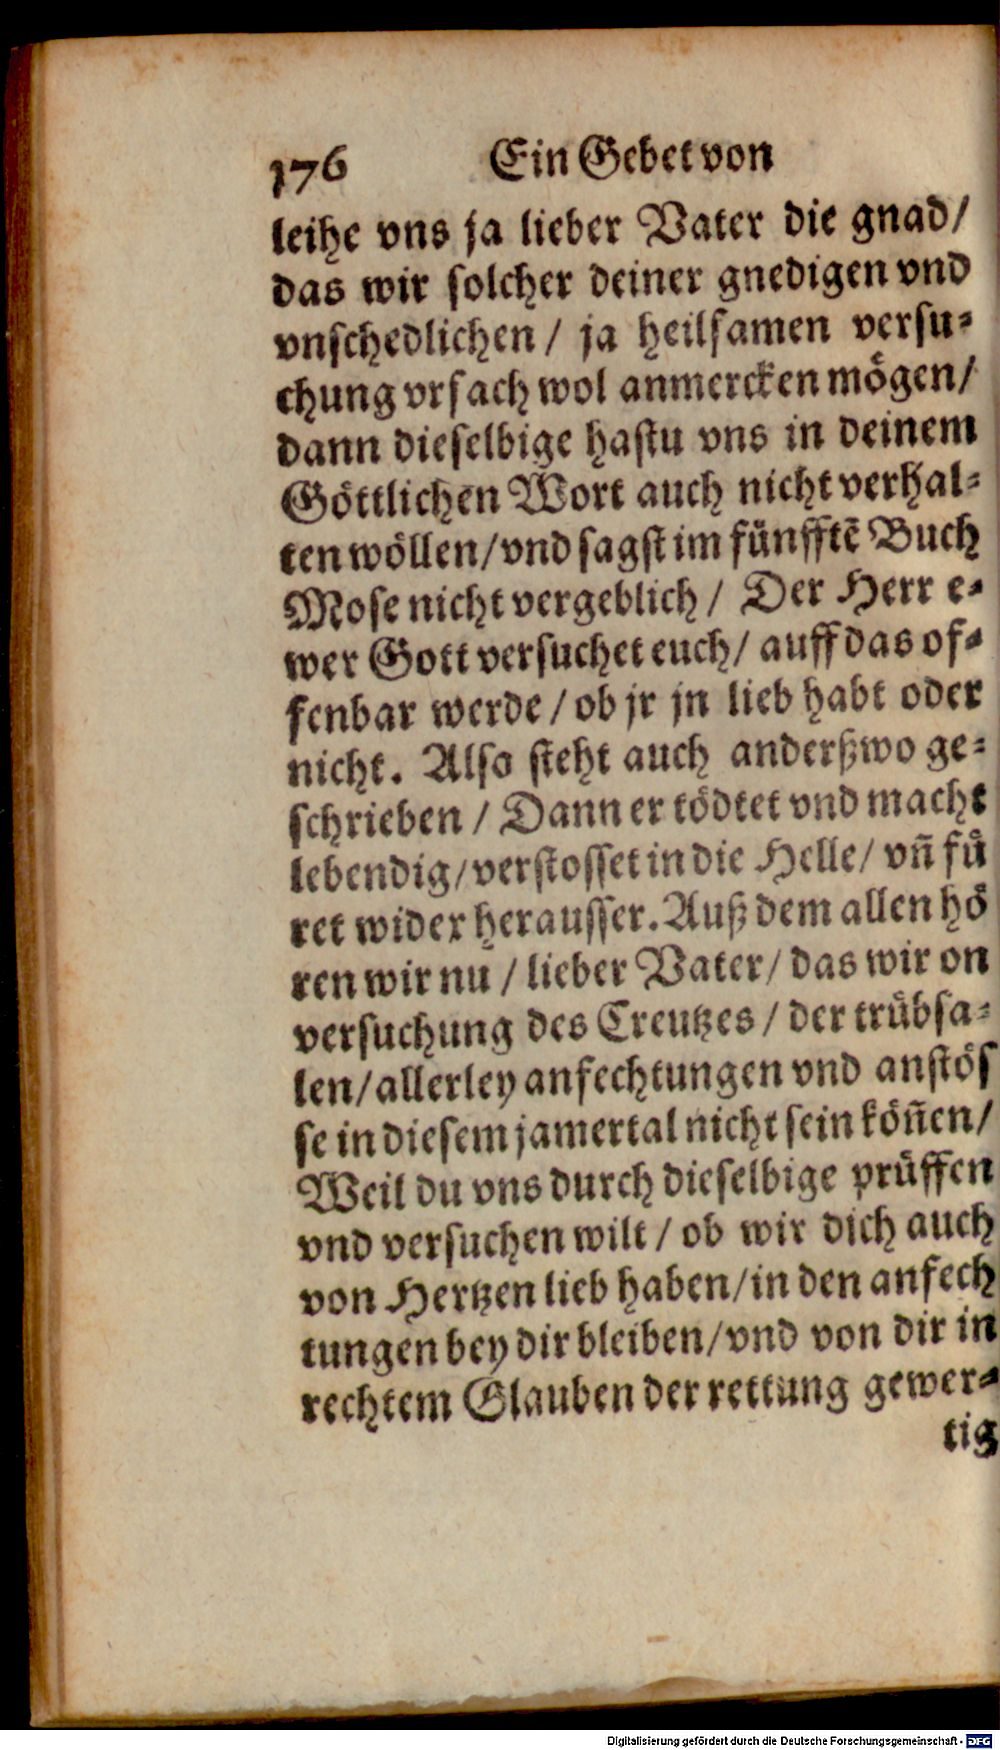 176 Ein Gebet von
leihe vns ja lieber Vater die gnad/
das wir solcher deiner gnedigen vnd
vnschedlichen / ja heilsamen versu⸗
chung vrsach wol anmercken mögen/
dann dieselbige hastu vns in deinem
Göttlichen Wort auch nicht verhal⸗
ten wöllen/vnd sagst im fünfftē Buch
Mose nicht vergeblich / Der Herr e⸗
wer Gott versuchet euch/ auff das of⸗
fenbar werde / ob jr jn lieb habt oder
nicht. Also steht auch anderßwo ge⸗
schrieben / Dann er tödtet vnd macht
lebendig/verstosset in die Helle/ vn̄ fü
ret wider herausser. Auß dem allen hö
ren wir nu / lieber Vater/ das wir on
versuchung des Creutzes / der trübsa⸗
len/allerley anfechtungen vnd anstös
se in diesem jamertal nicht sein kön̄en/
Weil du vns durch dieselbige prüffen
vnd versuchen wilt / ob wir dich auch
von Hertzen lieb haben/in den anfech
tungen bey dir bleiben/vnd von dir in
rechtem Glauben der rettung gewer⸗
tig
Digitalisierung gefördert durch die Deutsche Forschungsgemeinschaft - DFG